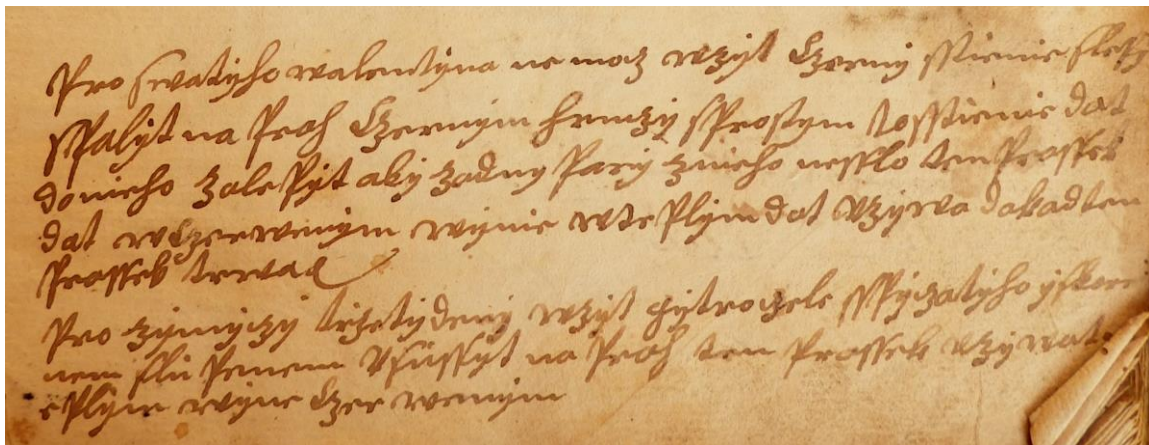 Pro swatyho walentyna ne moz wzyt Czerny sstienie slepy
spalyt na prah Czernym hrnczy sprostym to sstienie dat
do nieho zalepyt aby zadny pary z nieho nesslo ten prassek
dat w Czerwenym wynie w teplym dat uzywa dakad ten
prassek trwa
Pro zymyczy trzetydeny wzyt gytroczele sspyczatyho y skore
nem slupenem usussyt na prah ten prassek uzywat
eplym wyne Czerwenym